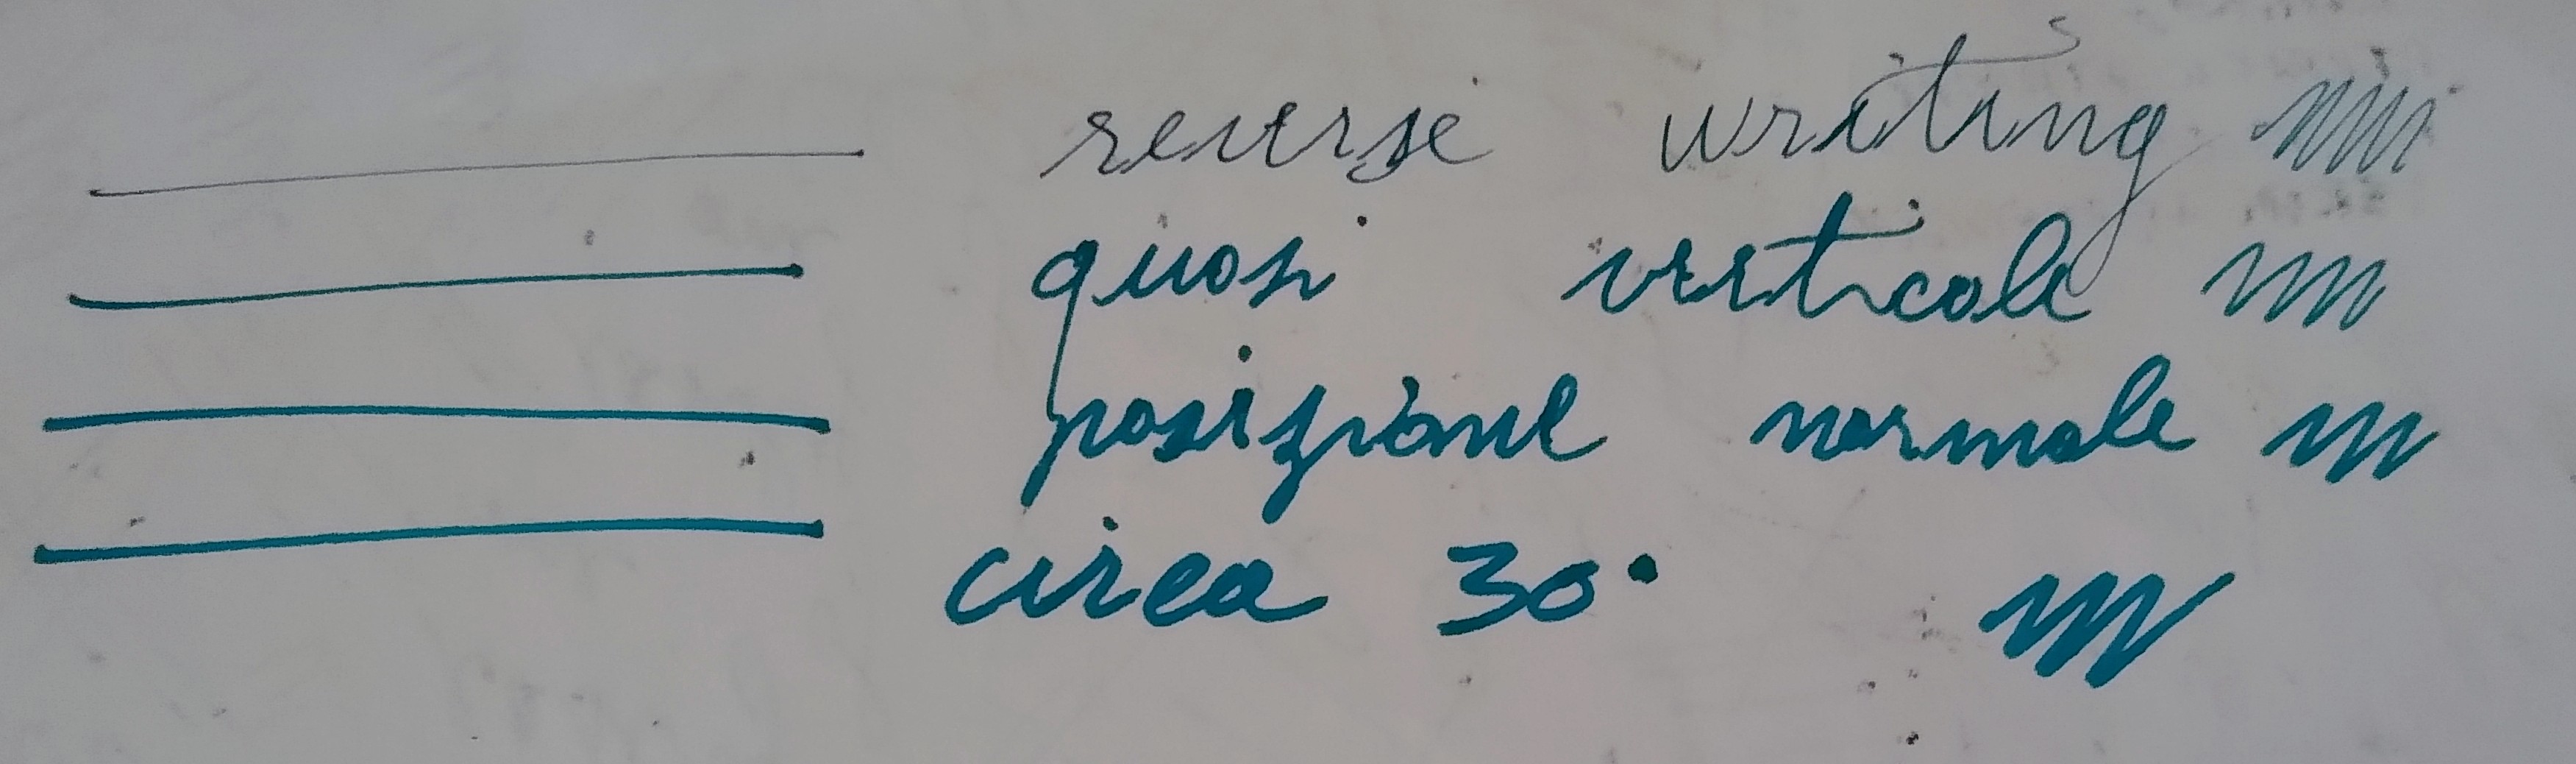 reverse writing
quasi verticale
posizione normale
circa 30°